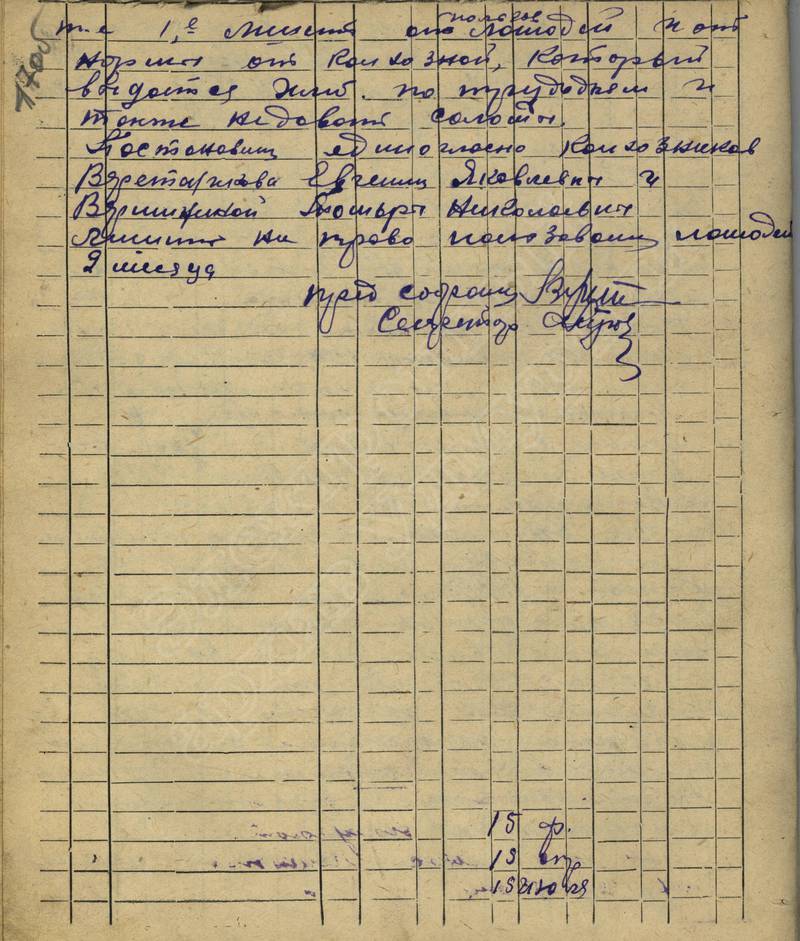 170об
т.е 1,е лишить от пользов лошадей и от
нормы от колхозной, который
выдается хлеб. по трудодням и
также недавать соломы.
Постановили единогласно колхозников
Евгения Яковлевич и
Николаевич
лишить на право пользования лошадей
2 месяца
пред собрания
Секретар
15 ф.
15 апр
15 июля